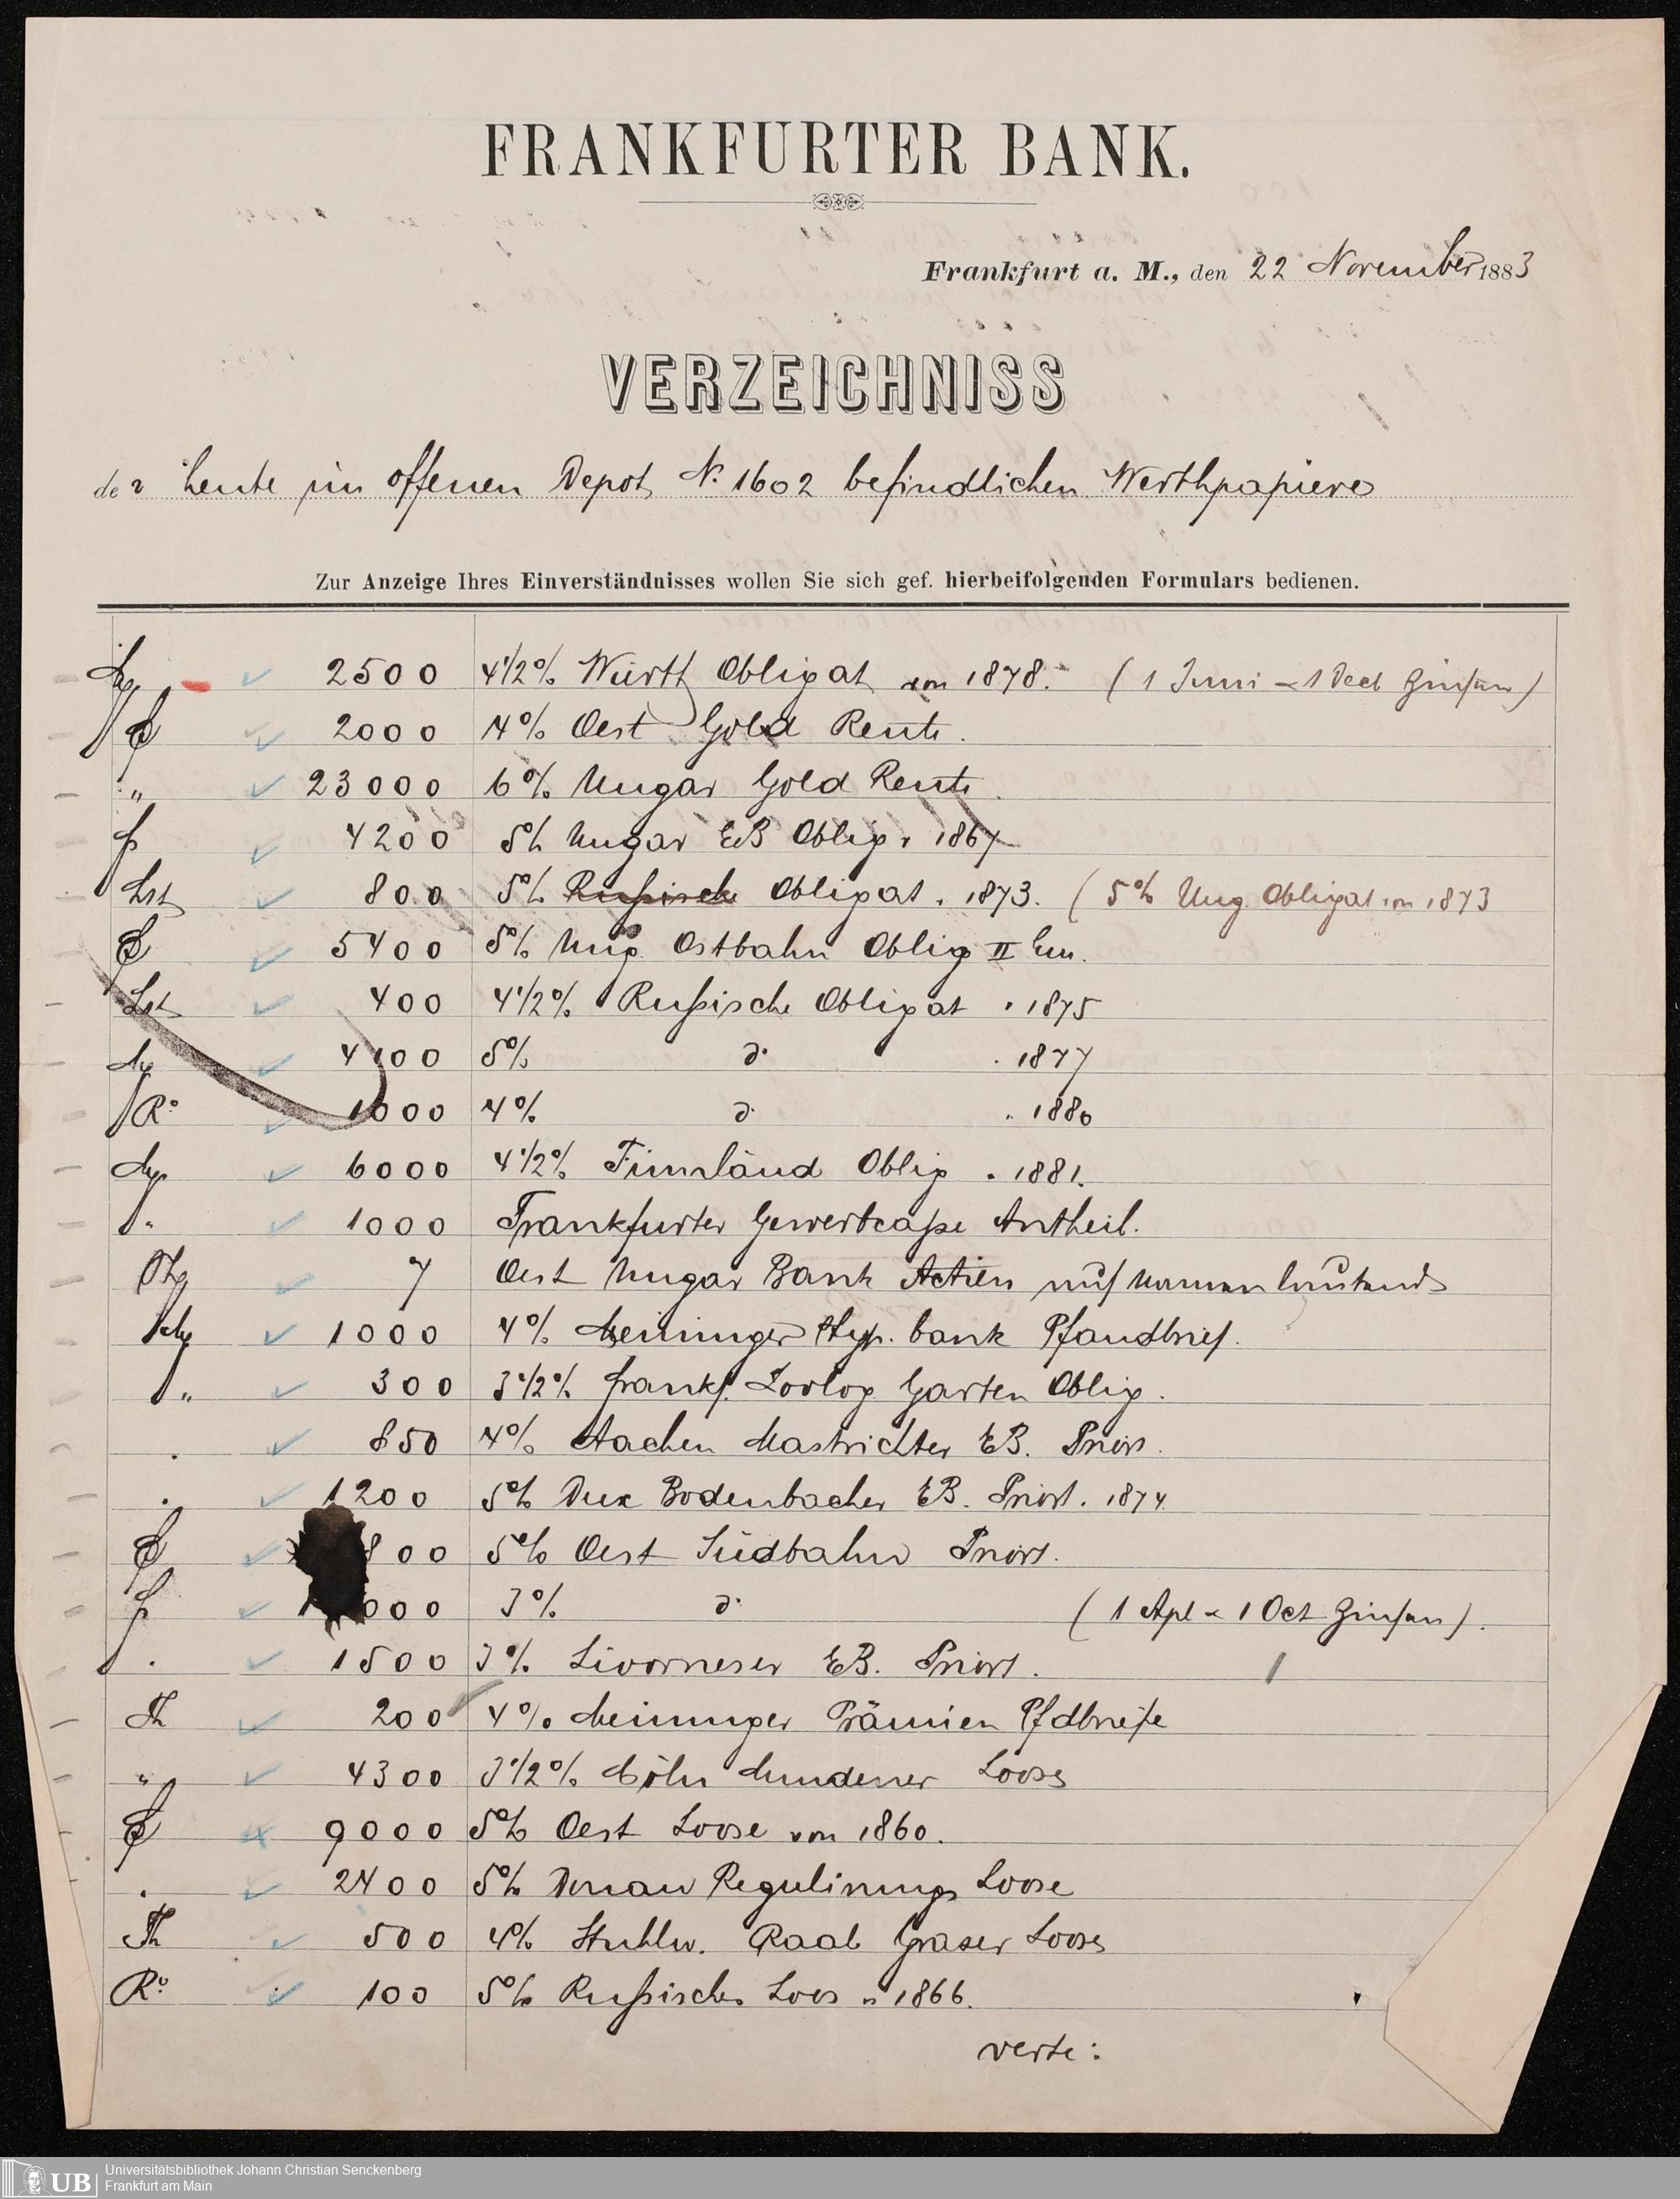 FRANKFURTER BANK.
Frankfurt a. M., den 22 November 1883
VERZEICHNISS
der heute im offenen Depot N. 1602 befindlichen Werthpapiere
Zur Anzeige Ihres Einverständnisses wollen Sie sich gef. hierbeifolgenden Formulars bedienen.
2500 4 1/2% Württ Obligat von 1878. (1 Juni - 1 Dect Zinsen)
2000 4% Oest Gold Rente.
" 23000 6% Ungar Gold Rente.
4200 5% Ungar EB Oblig. 1867
Lst 800 5% Rußische Obligat. 1873. (5% Ung. Obligat von 1873
5400 5% Ung. Ostbahn Oblig II Em.
Lst 400 4 1/2% Rußische Obligat " 1875
4100 5% do " 1877
Ro 1000 4% do " 1880
6000 4 1/2% Finnländ Oblig. " 1881.
" 1000 Frankfurter Gewerbcaße Antheil.
Stg 7 Oest Ungar Bank Actien auf Namen lautend
1000 4% Meininger Hyp. bank Pfandbrief.
" 300 3 1/2% Frankf. Zoolog Garten Oblig.
. 850 4% Aachen Mastrichter EB. Priort.
. 1200 5% Dux Bodenbacher EB. Priort. 1874.
800 5% Oest Südbahn Priort.
000 3% do (1 Apl - 1 Oct Zinsen).
. 1500 3% Livorneser EB. Priort.
Th 200 4% Meininger Prämien Pfdbriefe
" 4300 3 1/2% Cöln Mindener Loose
9000 5% Oest Loose von 1860.
. 2400 5% Donau Regulirungs Loose
Th 500 4% Stuhlw. Raab Grazer Loose
Ro 100 5% Rußisches Loos " 1866.
verte:
UB
Universitätsbibliothek Johann Christian Senckenberg
Frankfurt am Main